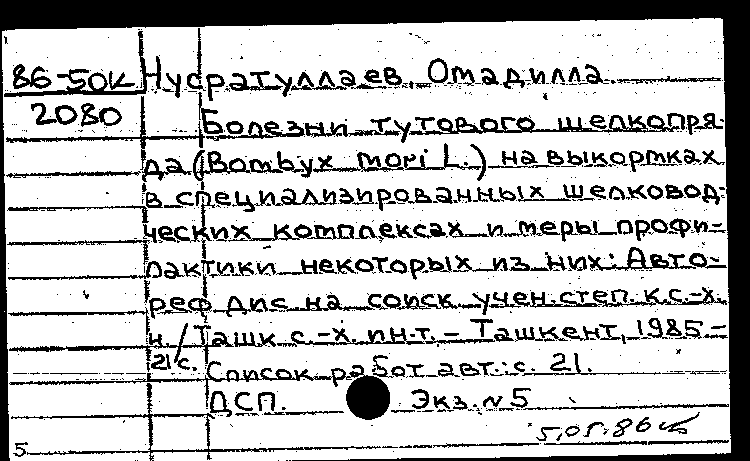 86-50к Нусратуллаев, Омадилла.
2080
Болезни тутового шелкопря-
да (Bombyx mori L.) на выкормках
в специализированных шелковод-
ческих комплексах и меры профи-
лактики некоторых из них: Авто-
реф дис на соиск учен. степ. к.с.-х.
н./Ташк с.-х. ин-т. - Ташкент, 1985 -
21 с.
Список работ авт.: с. 21.
ДСП. Экз. N 5
5.05.86
5